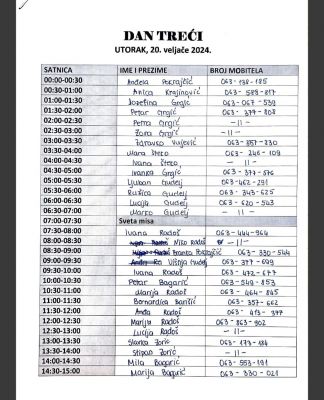 DAN TREĆI
UTORAK, 20. veljače 2024.
SATNICA IME I PREZIME BROJ MOBITELA
00:00-00:30 Anđela Pokrajčić 063-138-185
00:30-01:00 Anica Krajinović 063-589-817
01:00-01:30 Jozefina Grgić 063-067-539
01:30-02:00 Petar Grgić 063-377-808
02:00-02:30 Petra Grgić -11-
02:30-03:00 Zara Grgić -11-
03:00-03:30 Zdravko Vujević 063-857-230
03:30-04:00 Mara Štero 063-246-109
04:00-04:30 Ivan Štero -11-
04:30-05:00 Ivanka Grgić 063-377-576
05:00-05:30 Ljuban Gudelj 063-462-291
05:30-06:00 Ružica Gudelj 063-343-625
06:00-06:30 Lucija Gudelj 063-620-543
06:30-07:00 Marko Gudelj -11-
07:00-07:30 Sveta misa
07:30-08:00 Ivana Radoš 063-444-964
08:00-08:30 Miko Radoš -11-
08:30-09:00 Branka Pokrajčić 063-330-544
09:00-09:30 Višnja Gudelj 063-377-699
09:30-10:00 Ivana Radoš 063-472-677
10:00-10:30 Petar Bagarić 063-549-853
10:30-11:00 Marija Radoš 063-464-845
11:00-11:30 Bernardica Barišić 063-357-662
11:30-12:00 Anđa Radoš 063-413-377
12:00-12:30 Marija Radoš 063-863-902
12:30-13:00 Lucija Radoš -11-
13:00-13:30 Slavka Zorić 063-173-184
13:30-14:00 Stipan Zorić -11-
14:00-14:30 Mila Bagarić 063-553-191
14:30-15:00 Marija Bagarić 063-330-021